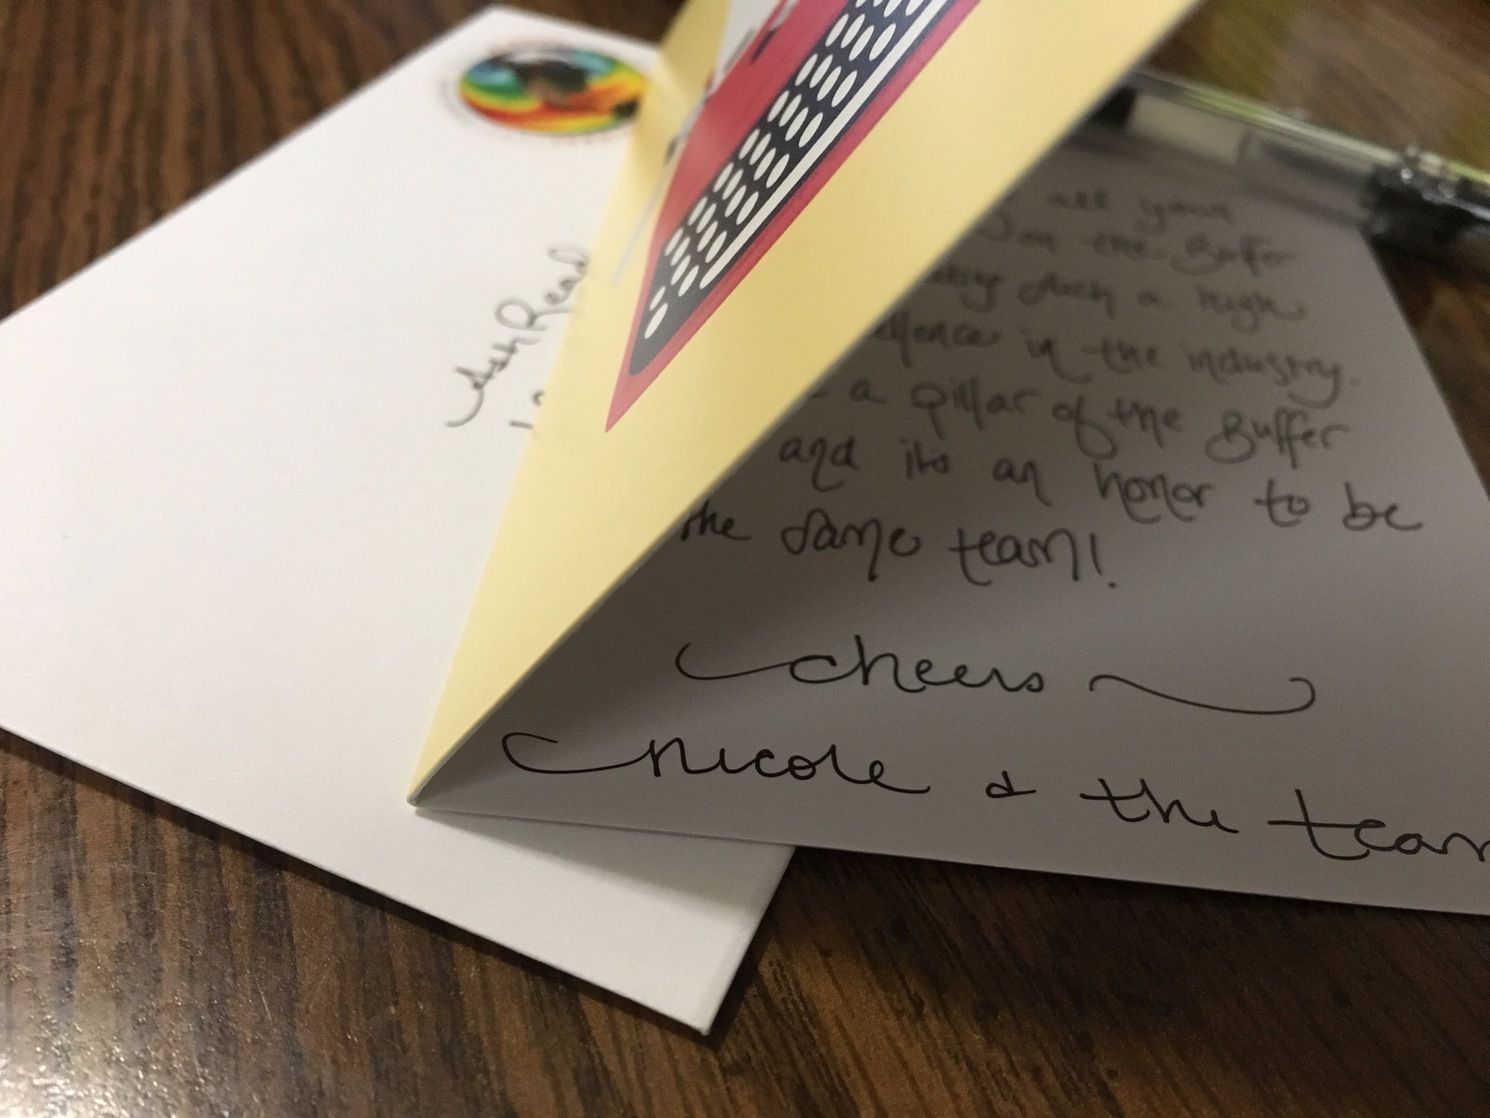 Ash Read
all your
on the Buffer
such a high
ellence in the industry.
a pillar of the Buffer
and its an honor to be
the same team!
cheers
nicole & the team